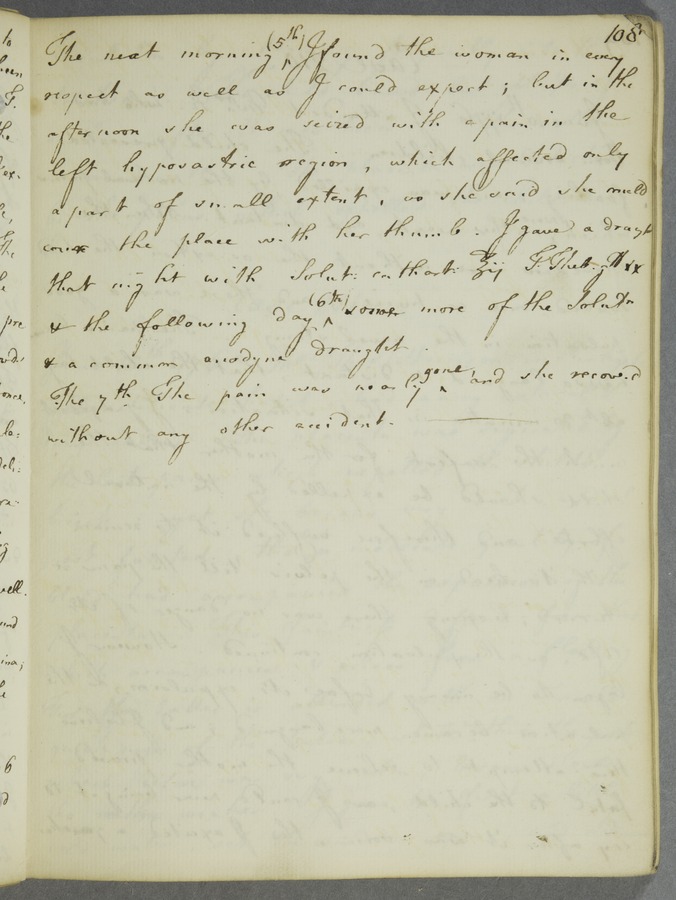 108
The next morning (5th) I found the woman in every
respect as well as I could expect; but in the
afternoon she was seized with a pain in the
left hypogastric region, which affected only
a part of small extent, so she said she could
cover the place with her thumb. I gave a draught
that night with Solut: cathart: ʒij T. Theb. gtt xx
& the following day (6th) some more of the Solutn
& a common anodyne draught.
The 7th. The pain was nearly gone and she recover'd
without any other accident.